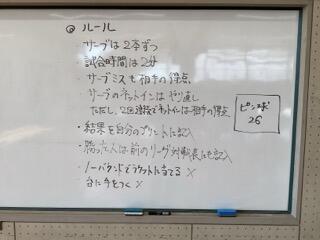 ◎ ルール
・サーブは2本ずつ
・試合時間は2分
・サーブミスも相手の得点
・サーブのネットインはやり直し
ただし、2回連続でネットインは相手の得点
・結果を自分のプリントに記入
・勝った人は前のリーグ対戦表にも記入
・ノーバウンドでラケットに当てる ×
台に手をつく ×
ピン球
26